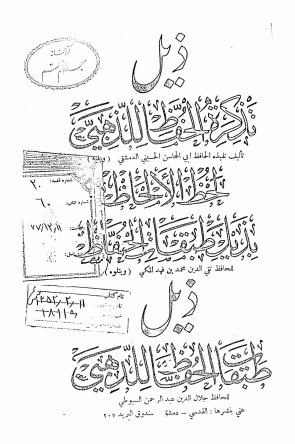 ذيل
تذكرة الحفاظ للذهبي
تأليف تلميذه الحافظ أبي المحاسن الحسيني الدمشقي (ويليه)
لحظ الألحاظ
بذيل طبقات الحفاظ
للحافظ تقي الدين محمد بن فهد المكي (ويتلوه)
ذيل
طبقات الحفاظ للذهبي
للحافظ جلال الدين عبد الرحمن السيوطي
عني بنشرها : القدسي - دمشق صندوق البريد ٢٠٧